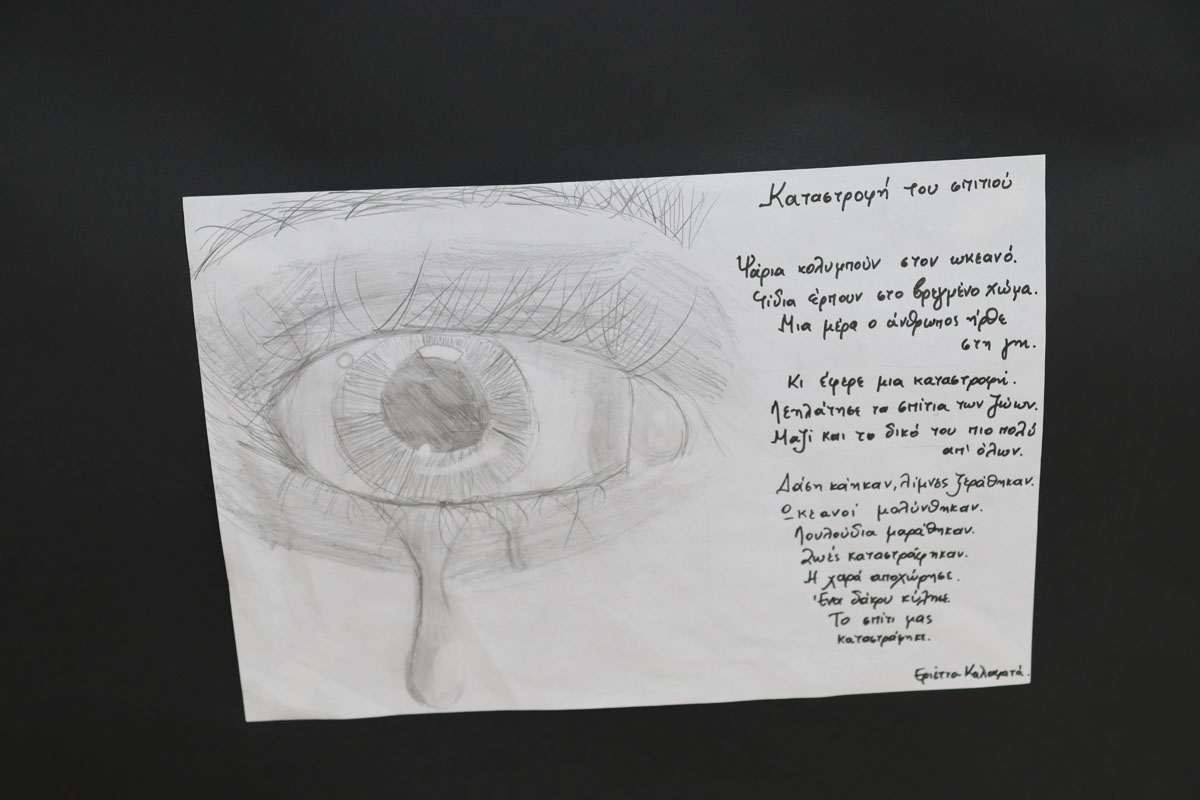 Καταστροφή του σπιτιού
Ψάρια κολυμπούν στον ωκεανό.
Φίδια έρπουν στο βρεγμένο χώμα.
Μια μέρα ο άνθρωπος ήρθε
στη γη.
Κι έφερε μια καταστροφή.
Λεηλάτησε τα σπίτια των ζώων.
Μαζί και το δικό του πιο πολύ
απ' όλων.
Δάση κάηκαν, λίμνες ξεράθηκαν.
Ωκεανοί μολύνθηκαν.
Λουλούδια μαράθηκαν.
Ζωές καταστράφηκαν.
Η χαρά αποχώρησε.
Ένα δάκρυ κύλησε.
Το σπίτι μας
καταστράφηκε.
Εριέττα